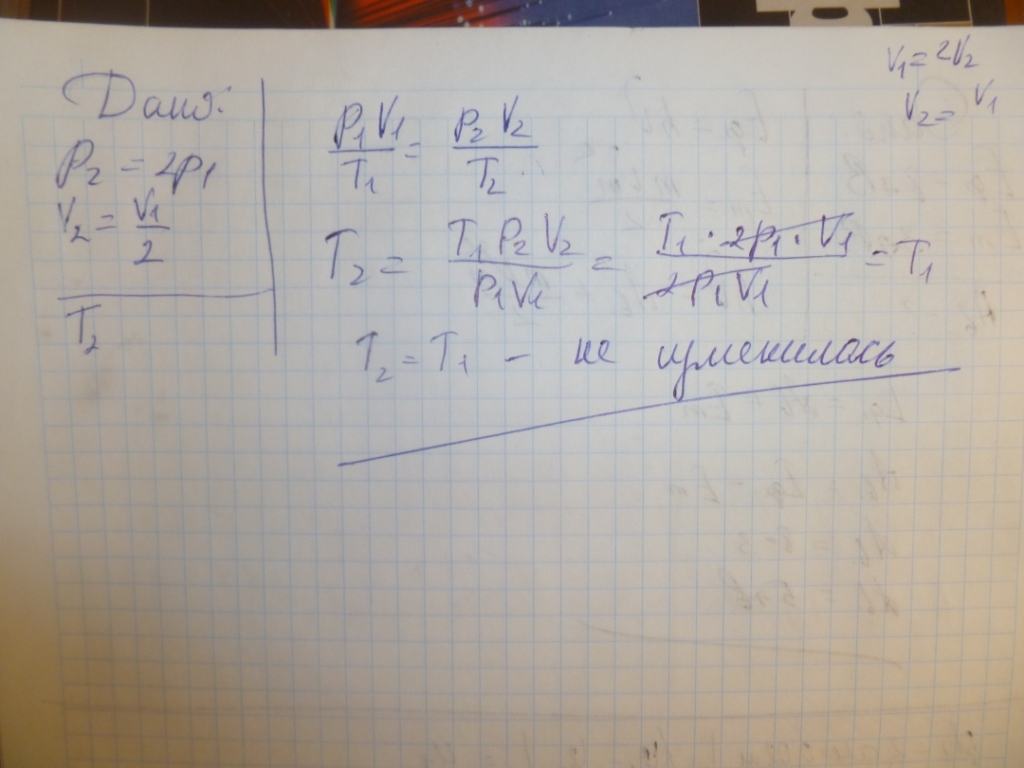 V₁ = 2V₂
V₂ = V₁
Дано:
P₂ = 2p₁
V₂ = V₁/2
T₂
P₁V₁/T₁ = P₂V₂/T₂
T₂ = T₁P₂V₂/P₁V₁ = T₁ · 2p₁ · V₁/2P₁V₁ = T₁
T₂ = T₁ – не изменилась